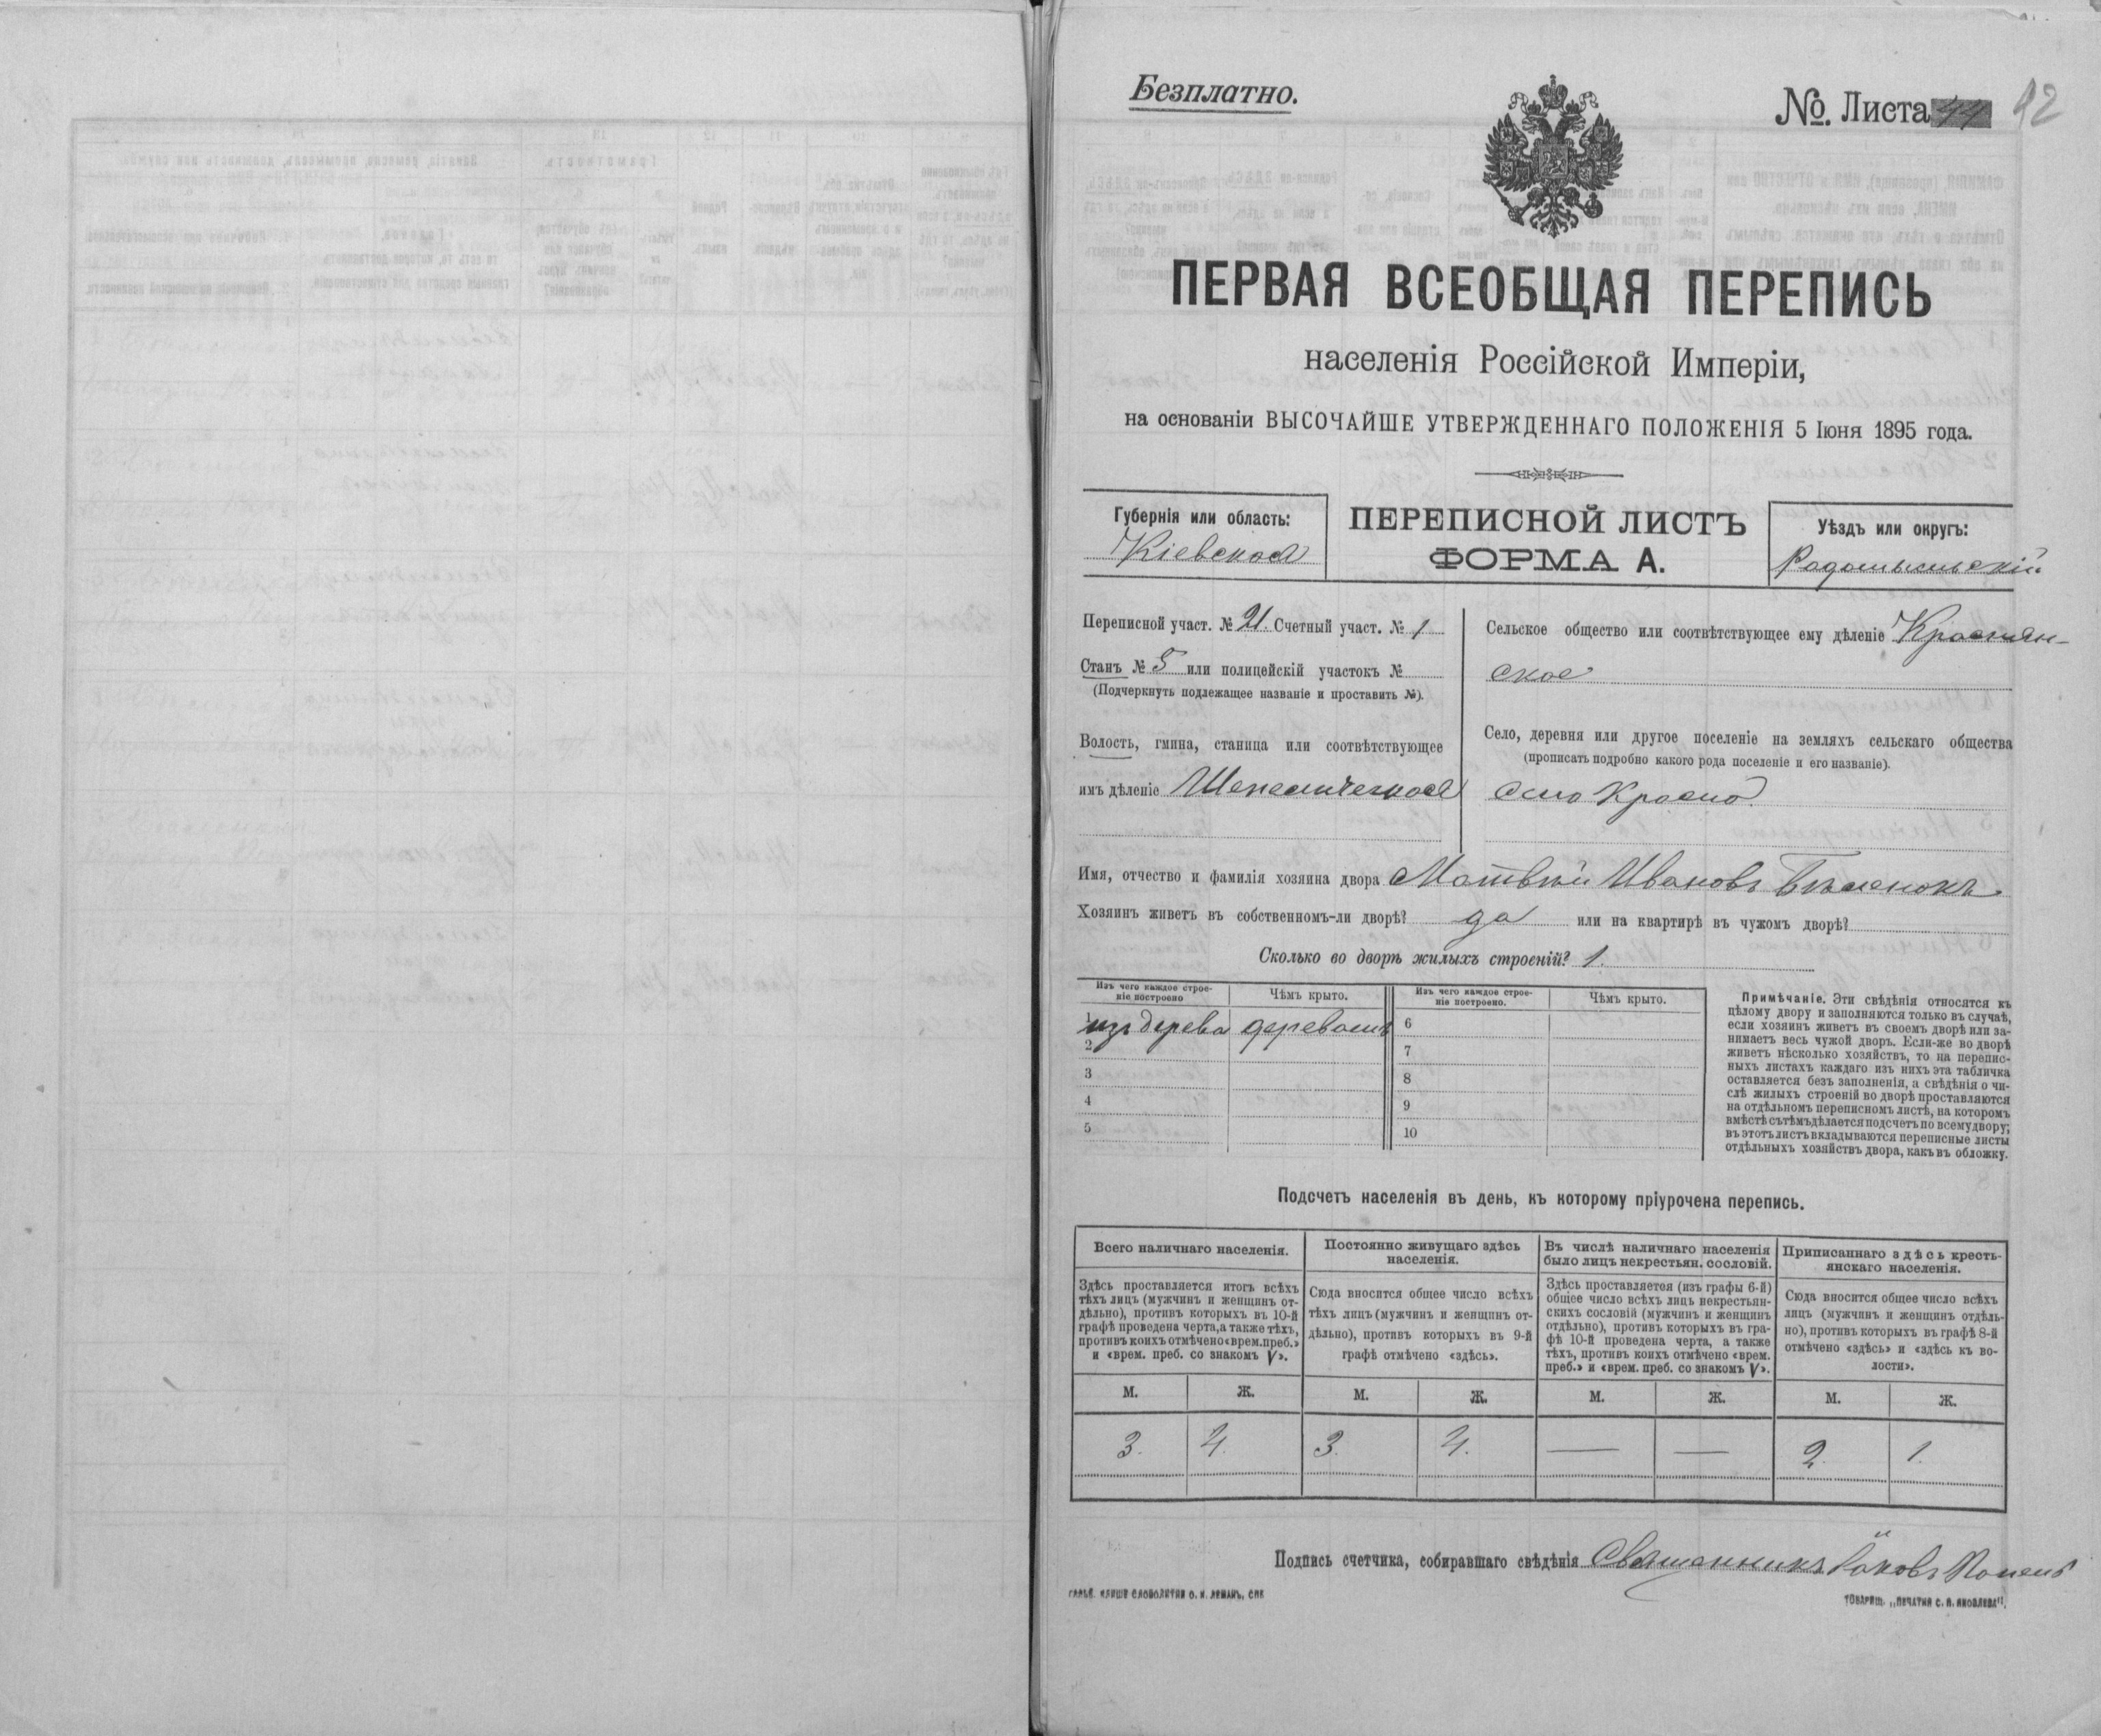 Безплатно.
№ Листа 44 42
ПЕРВАЯ ВСЕОБЩАЯ ПЕРЕПИСЬ
населенія Россійской Имперіи,
на основаніи ВЫСОЧАЙШЕ УТВЕРЖДЕННАГО ПОЛОЖЕНІЯ 5 Іюня 1895 года.
Губернія или область:
Кіевская
ПЕРЕПИСНОЙ ЛИСТЪ
ФОРМА А.
Уѣздъ или округъ:
Радомысльскій
Переписной участ. № 21. Счетный участ. № 1
Станъ № 5 или полицейскій участокъ №
(Подчеркнуть подлежащее названіе и проставить №).
Волость, гмина, станица или соотвѣтствующее
имъ дѣленіе Шепеличская
Сельское общество или соотвѣтствующее ему дѣленіе Краснян-
ское
Село, деревня или другое поселеніе на земляхъ сельскаго общества
(прописать подробно какого рода поселеніе и его названіе).
село Красно.
Имя, отчество и фамилія хозяина двора Матвѣй Ивановъ
Хозяинъ живетъ въ собственномъ-ли дворѣ? да или на квартирѣ въ чужомъ дворѣ?
Сколько во дворѣ жилыхъ строеній? 1.
Изъ чего каждое строе-
ніе построено
Чѣмъ крыто.
Изъ чего каждое строе-
ніе построено.
Чѣмъ крыто.
1 изъ дерева деревомъ 6
2 7
3 8
4 9
5 10
Примѣчаніе. Эти свѣдѣнія относятся къ
цѣлому двору и заполняются только въ случаѣ,
если хозяинъ живетъ въ своемъ дворѣ или за-
нимаетъ весь чужой дворъ. Если-же во дворѣ
живетъ нѣсколько хозяйствъ, то на перепис-
ныхъ листахъ каждаго изъ нихъ эта табличка
оставляется безъ заполненія, а свѣдѣнія о чи-
слѣ жилыхъ строеній во дворѣ проставляются
на отдѣльномъ переписномъ листѣ, на которомъ
вмѣстѣ съ тѣмъ дѣлается подсчетъ по всему двору;
въ этотъ листъ вкладываются переписные листы
отдѣльныхъ хозяйствъ двора, какъ въ обложку.
Подсчетъ населенія въ день, къ которому пріурочена перепись.
Всего наличнаго населенія.
Здѣсь проставляется итогъ всѣхъ
тѣхъ лицъ (мужчинъ и женщинъ от-
дѣльно), противъ которыхъ въ 10-й
графѣ проведена черта, а также тѣхъ,
противъ коихъ отмѣчено «врем. преб.»
и «врем. преб. со знакомъ V».
Постоянно живущаго здѣсь
населенія.
Сюда вносится общее число всѣхъ
тѣхъ лицъ (мужчинъ и женщинъ от-
дѣльно), противъ которыхъ въ 9-й
графѣ отмѣчено «здѣсь».
Въ числѣ наличнаго населенія
было лицъ некрестьян. сословій.
Здѣсь проставляется (изъ графы 6-й)
общее число всѣхъ лицъ некрестьян-
скихъ сословій (мужчинъ и женщинъ
отдѣльно), противъ которыхъ въ гра-
фѣ 10-й проведена черта, а также
тѣхъ, противъ коихъ отмѣчено «врем.
преб.» и «врем. преб. со знакомъ V».
Приписаннаго здѣсь кресть-
янскаго населенія.
Сюда вносится общее число всѣхъ
лицъ (мужчинъ и женщинъ отдѣль-
но), противъ которыхъ въ графѣ 8-й
отмѣчено «здѣсь» и «здѣсь къ во-
лости».
М. Ж. М. Ж. М. Ж. М. Ж.
3. 4. 3. 4. — — 2. 1.
Подпись счетчика, собиравшаго свѣдѣнія Священникъ Іаковъ
СЛОВОЛИТНИ О. И. ЛЕМАНЪ, СПБ
ТОВАРИЩ. „ПЕЧАТНЯ С. П. ЯКОВЛЕВА".